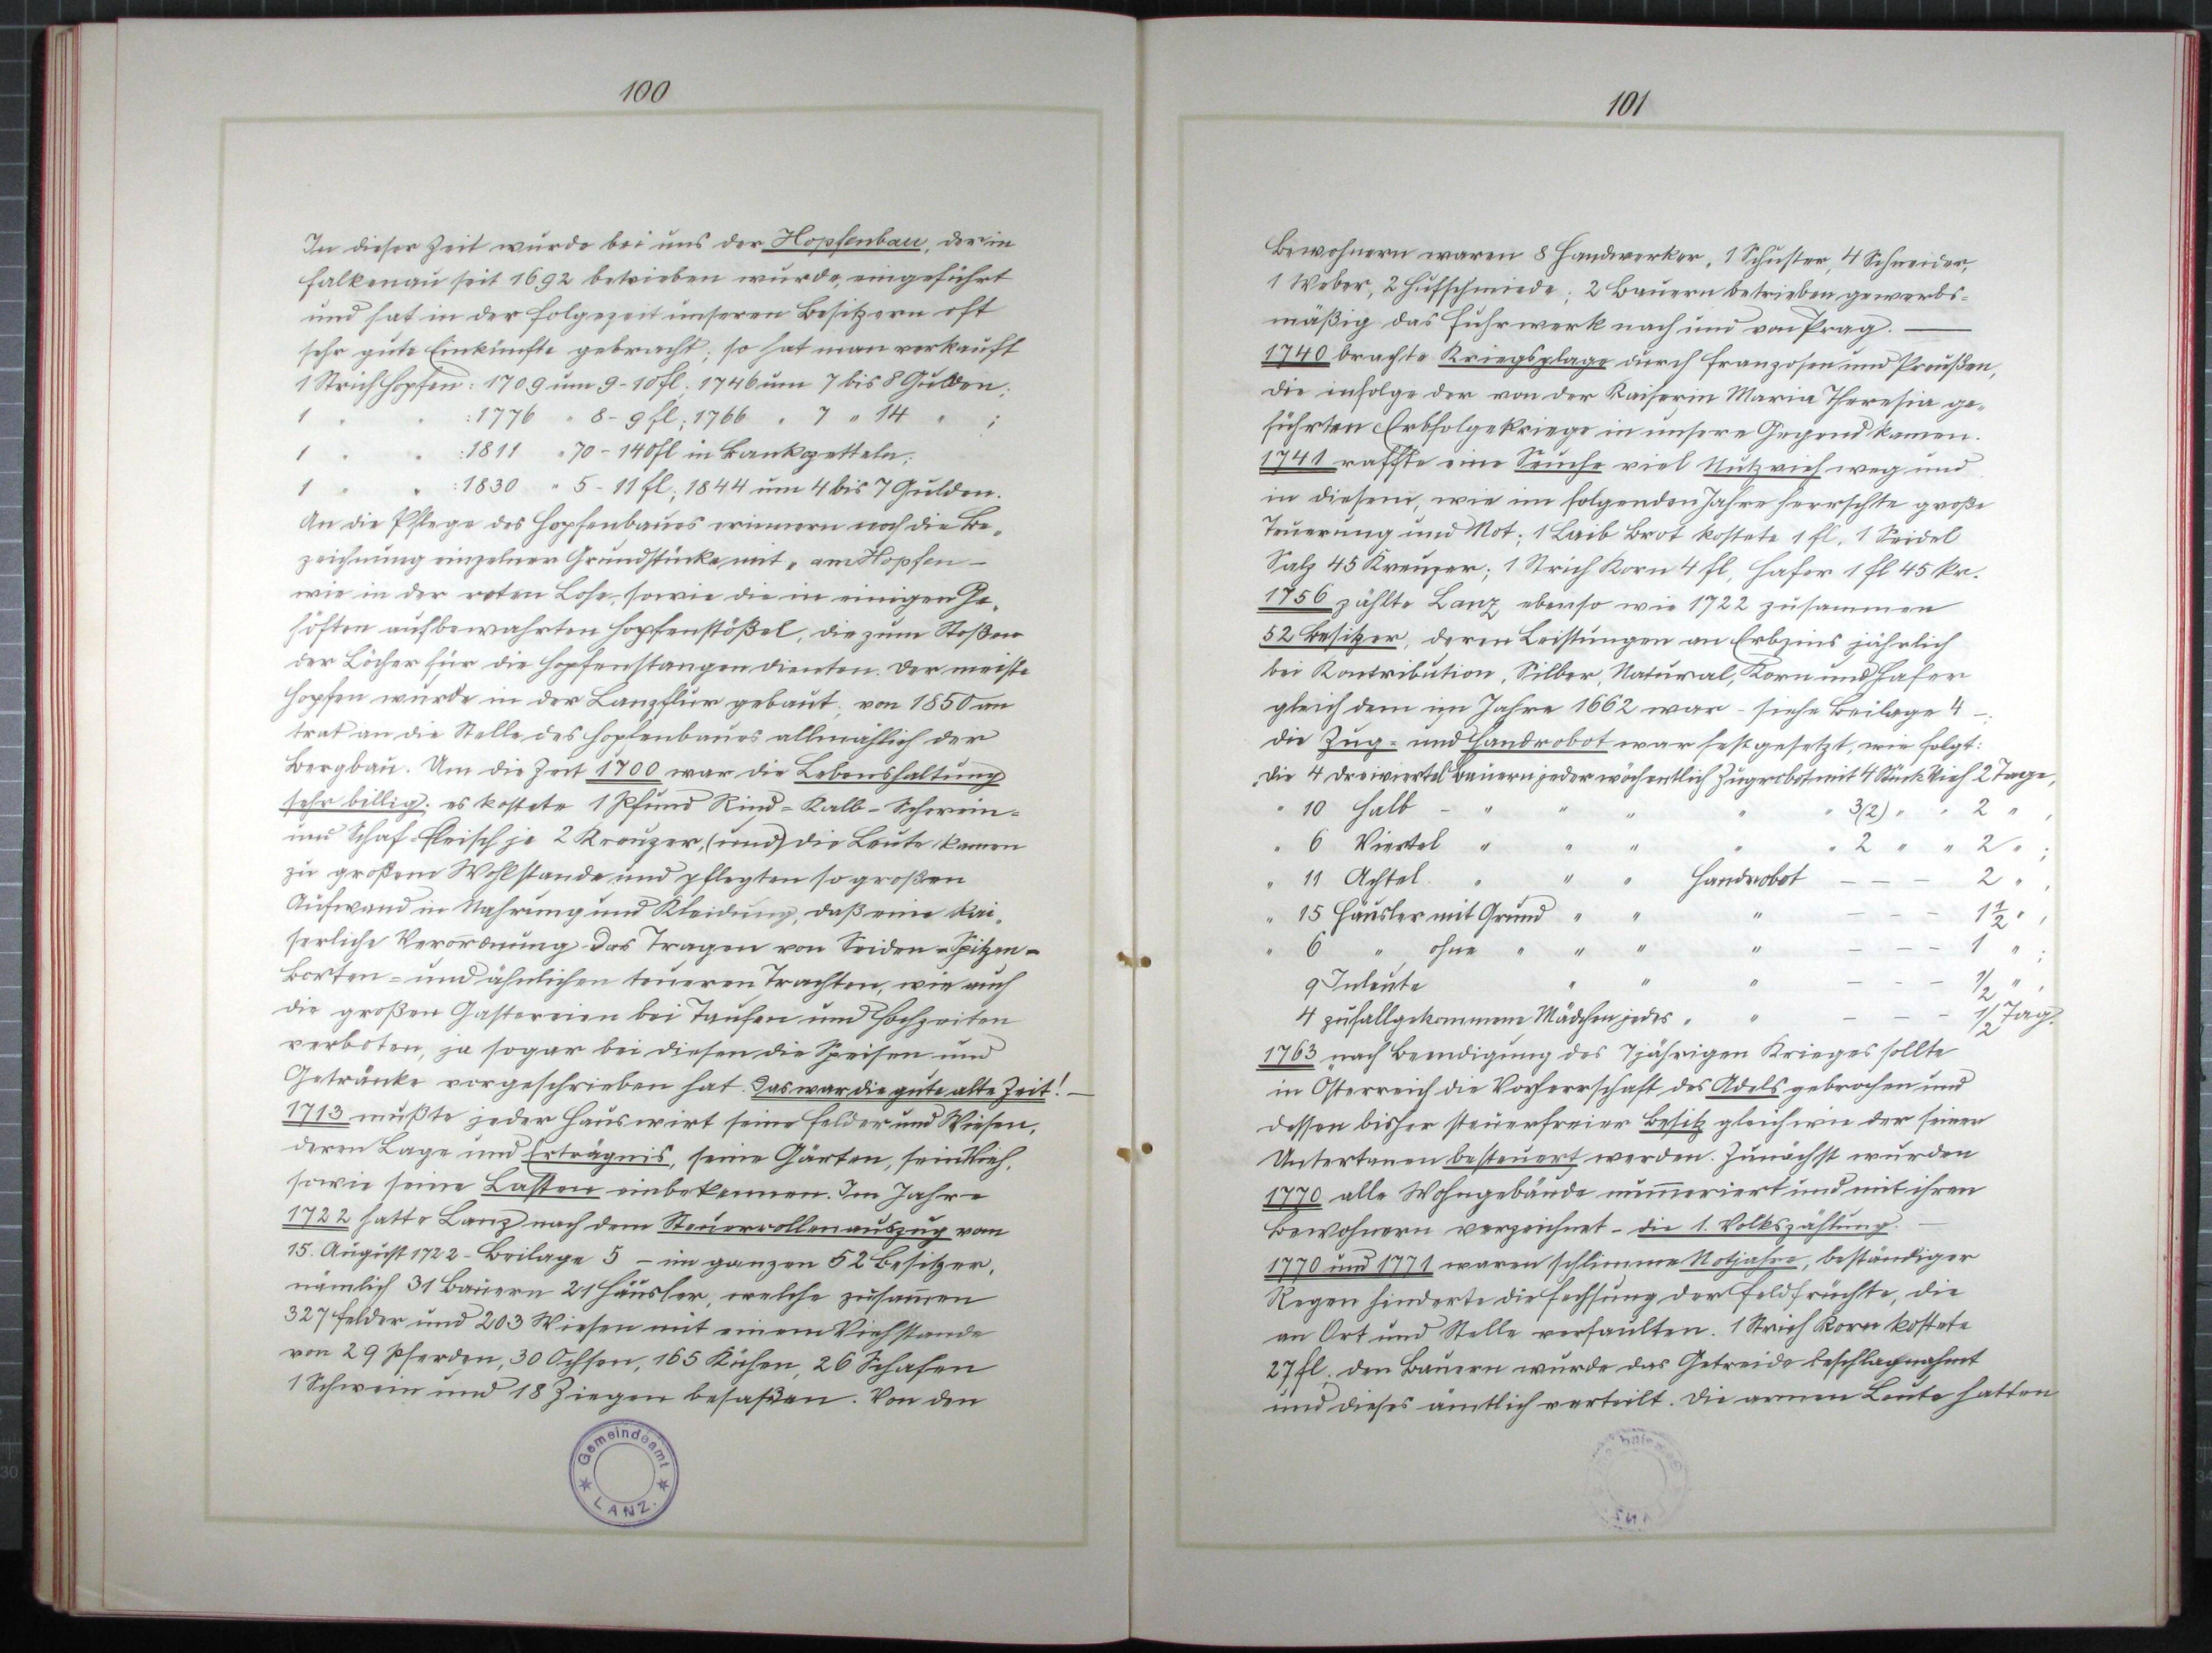 100
In dieser Zeit wurde bei uns der Hopfenbau, der in
Falkenau seit 1692 betrieben wurde, eingeführt
und hat in der Folgezeit unseren Besitzern oft
sehr gute Einkünfte gebracht; so hat man verkauft
1 Strich Hopfen: 1709 um 9-10 fl. 1746 um 7 bis 8 Gulden;
1 " " : 1776 " 8-9 fl; 1766 " 7 " 14 " ;
1 " " : 1811 " 70-140 fl in Bankzetteln;
1 " " : 1830 " 5-11 fl; 1844 um 4 bis 7 Gulden.
An die Pflege des Hopfenbaues erinnern noch die Be-
zeichnung einzelner Grundstücke mit „ am Hopfen -
wie in der roten Lohe, sowie die in einigen Ge-
höften aufbewahrten Hopfenstößel, die zum Stoßen
der Löcher für die Hopfenstangen dienten. Der meiste
Hopfen wurde in der Lanzflur gebaut; von 1850 an
trat an die Stelle des Hopfenbaues allmählich der
Bergbau. Um die Zeit 1700 war die Lebenshaltung
sehr billig; es kostete 1 Pfund Rind- Kalb- Schwein-
und Schaf-fleisch je 2 Kreuzer, (und) die Leute kamen
zu großem Wohlstande und pflegten so großen
Aufwand in Nahrung und Kleidung, daß eine Kai-
serliche Verordnung das Tragen von Seiden- Spitzen-
Borten- und ähnlichen teueren Trachten, wie auch
die großen Gastereien bei Taufen und Hochzeiten
verboten, ja sogar bei diesen die Speisen und
Getränke vorgeschrieben hat. Das war die gute alte Zeit! -
1713 mußte jeder Hauswirt seine Felder und Wiesen,
deren Lage und Erträgnis, seine Gärten, sein Vieh,
sowie seine Lasten einbekennen. Im Jahre
1722 hatte Lanz nach dem Steuerrollenauszug vom
15. August 1722 - Beilage 5 - im ganzen 52 Besitzer,
nämlich 31 Bauern 21 Häusler, welche zusammen
327 Felder und 203 Wiesen mit einem Viehstande
von 29 Pferden, 30 Ochsen, 165 Kühen, 26 Schafen
1 Schwein und 18 Ziegen besaßen. Von den
Gemeindeamt
LANZ.
101
Bewohnern waren 8 Handwerker, 1 Schuster, 4 Schneider,
1 Weber, 2 Hufschmiede; 2 Bauern betrieben gewerbs-
mäßig das Fuhrwerk nach und von Prag. -
1740 brachte Kriegsplage durch Franzosen und Preußen,
die infolge der von der Kaiserin Maria Theresia ge-
führten Erbfolgekriege in unsere Gegend kamen.
1741 raffte eine Seuche viel Nutzvieh weg und
in diesem, wie im folgenden Jahre herrschte große
Teuerung und Not; 1 Laib Brot kostete 1 fl, 1 Seidel
Salz 45 Kreuzer; 1 Strich Korn 4 fl, Hafer 1 fl 45 kr.
1756 zählte Lanz ebenso wie 1722 zusammen
52 Besitzer, deren Leistungen an Erbzins jährlich
bei Kontribution, Silber, Natural, Korn und Hafer
gleich dem im Jahre 1662 war - siehe Beilage 4 -;
die Zug- und Handrobot war festgesetzt, wie folgt:
Die 4 dreiviertel Bauern jeder wöchentlich Zugrobot mit 4 Stück Vieh 2 Tage,
" 10 Halb - " " " " " 3(2) " " 2 " ,
" 6 Viertel " " " " " 2 " " 2 " ;
" 11 Achtel " " " Handrobot - - - 2 " ,
" 15 Häusler mit Grund " " " - - - 1 1/2 " ,
" 6 " ohne " " " " - - - 1 " ;
9 Inleute " " " - - - 1/2 " ,
4 zufallgekommene Mädchen jedes " " - - - 1/2 Tag.
1763 nach Beendigung des 7jährigen Krieges sollte
in Österreich die Vorherrschaft des Adels gebrochen und
dessen bisher steuerfreier Besitz gleichwie der seiner
Untertanen besteuert werden. Zunächst wurden
1770 alle Wohngebäude nummeriert und mit ihren
Bewohnern verzeichnet - die 1. Volkszählung. -
1770 und 1771 waren schlimme Notjahre, beständiger
Regen hinderte die Fechsung der Feldfrüchte, die
an Ort und Stelle verfaulten. 1 Strich Korn kostete
27 fl; den Bauern wurde das Getreide beschlagnahmt
und dieses ämtlich verteilt. Die armen Leute hatten